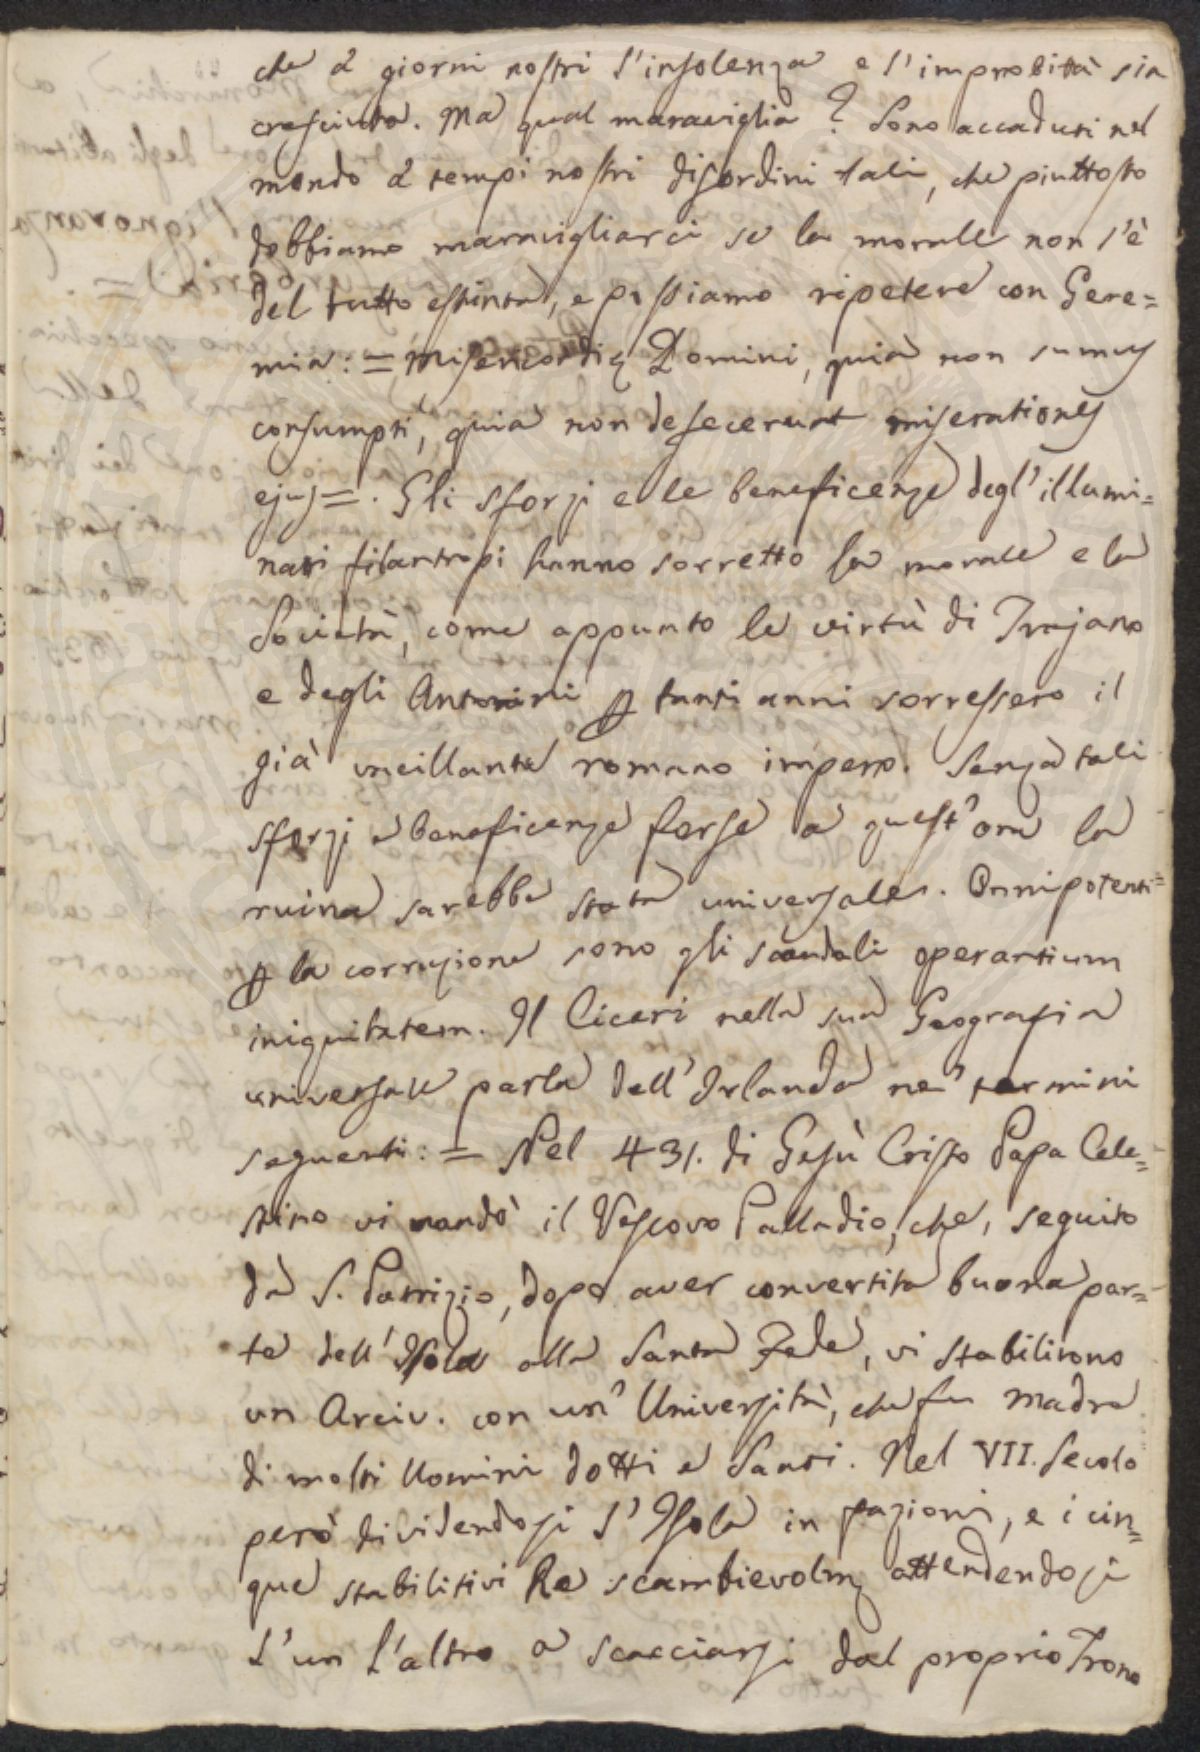 che a' giorni nostri l'insolenza e l'improbità sia
cresciuta. Ma qual maraviglia? Sono accaduti nel
mondo a' tempi nostri disordini tali, che piuttosto
dobbiamo maravigliarci se la morale non s'è
del tutto estinta, e possiamo ripetere con Gere=
mia: = Misericordię Domini, quia non sumus
consumpti, quia non defecerunt miserationes
ejus =. Gli sforzi e le beneficenze degl'illumi=
nati filantropi hanno sorretto la morale e la
Società, come appunto le virtù di Trajano
e degli Antonini ꝑ tanti anni sorressero il
già vacillante romano impero. Senza tali
sforzi e beneficenze forse a quest'ora la
ruina sarebbe stata universale. Onnipotenti=
ꝑ la corruzione sono gli scandali operantium
iniquitatem. Il Ciceri nella sua Geografia
universale parla dell'Irlanda ne' termini
seguenti: = Nel 431. di Gesù Cristo Papa Cele=
stino vi mandò il Vescovo Palladio, che, seguito
da S. Patrizio, dopo aver convertita buona par=
te dell'Isola alla Santa Fede, vi stabilirono
un Arciv. con un' Università, che fu madre
di molti Uomini dotti e Santi. Nel VII. Secolo
però dividendosi l'Isola in fazioni, e i cin=
que stabilitivi Re scambievolmę attendendosi
l'un l'altro a scacciarsi dal proprio Trono